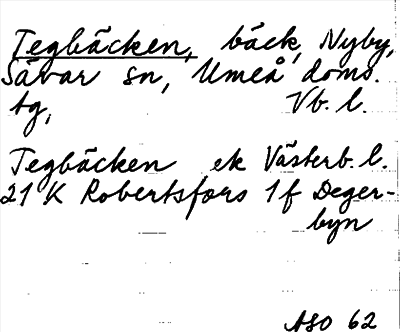 Tegbäcken, bäck, Nyby,
Sävar sn, Umeå doms.
tg, Vb. l.
Tegbäcken ek Västerb. l.
21 K Robertsfors 1 f Deger-
byn
ASO 62